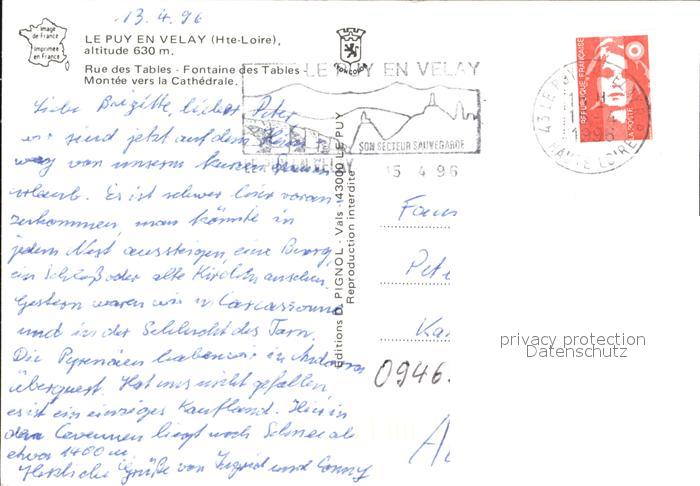 13.4.96
Image
de France
Imprimée
en France
LE PUY EN VELAY (Hte-Loire),
altitude 630 m.
Rue des Tables - Fontaine des Tables -
Montée vers la Cathédrale.
LE PUY EN VELAY
SON SECTEUR SAUVEGARDE
15 4 96
RÉPUBLIQUE FRANÇAISE
LA POSTE
43 LE PUY
1996
HAUTE LOIRE
Liebe Brigitte, lieber Peter
wir sind jetzt auf dem
weg von unserm kurzen
urlaub. Es ist schwer hier voran-
zukommen, man könnte in
jedem Nest aussteigen, eine Burg,
ein Schloß oder alte Kirchen anschen.
Gestern waren wir in Carcassonne
und in der Schlucht des Tarn.
Die Pyrenäen haben wir in Andorra
überquert. Hat uns nicht gefallen,
es ist ein einziges Kaufland. Hier in
den Cevennen liegt noch Schnee ab
etwa 1400 m.
Herzliche Grüße von Ingrid und Conny
Editions D. PIGNOL - Vals - 43000 LE PUY
Reproduction interdite
Fam
Pete
Ka
0946.
A
privacy protection
Datenschutz